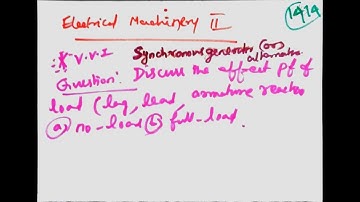 Electrical Machinery II
1419
V.V.I Synchronous generator (or) alternator
Question: Discuss the effect pf of
load (lag, lead, armature reaction
(a) no-load (b) full-load.